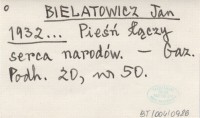 BIELATOWICZ Jan
1932... Pieśń łączy
serca narodów. — Gaz.
Podh. 20, nr 50.